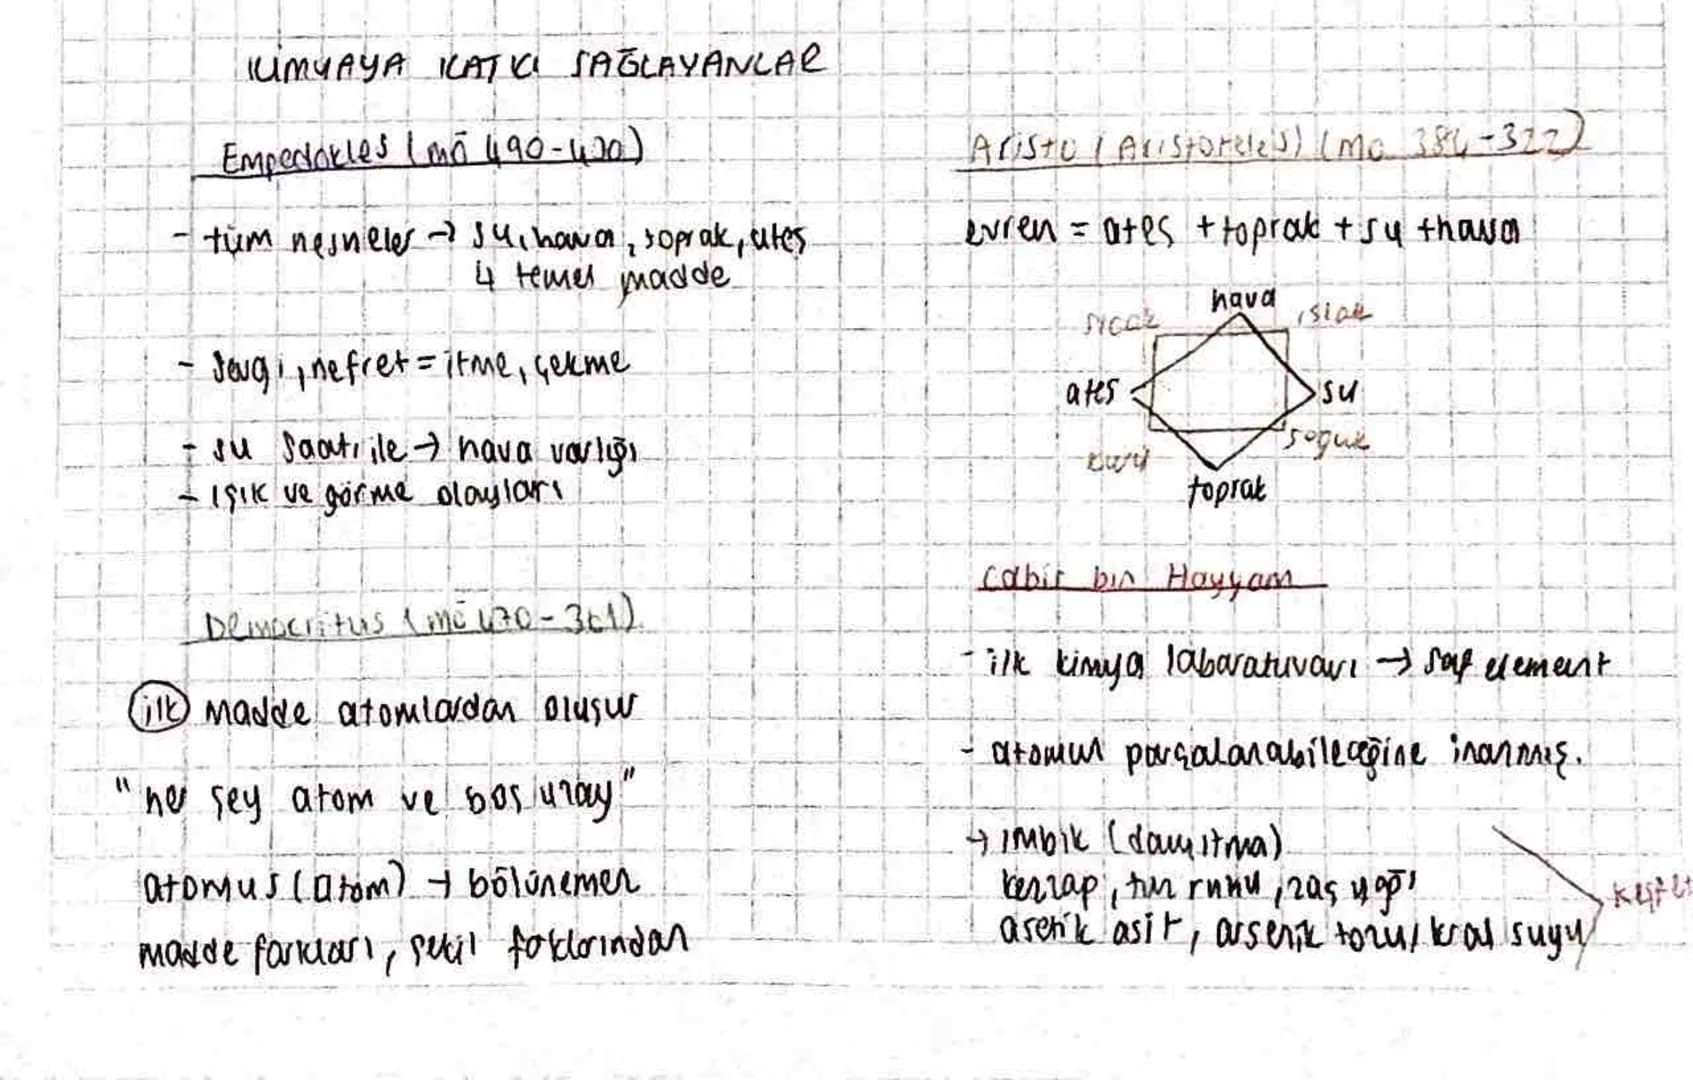 KİMYAYA KATKI SAĞLAYANLAR
Empedokles (mö 490-430)
- tüm nesneler → su, hava, toprak, ateş
4 temel madde
- sevgi, nefret = itme, çekme
- su saati ile → hava varlığı
- ışık ve görme olayları
Democritus (mö 470-361)
ilk madde atomlardan oluşur
"her şey atom ve boş uzay"
atomus (atom) → bölünemez
madde farkları, şekil farklarından
Aristo (Aristoteles) (mö 384-322)
evren = ateş + toprak + su + hava
hava
sıcak ıslak
ateş su
kuru soğuk
toprak
Cabir bin Hayyam
- ilk kimya labaratuvarı → saf element
- atomun parçalanabileceğine inanmış.
→ imbik (damıtma)
kezzap, tuz ruhu, zaç yağı
asetik asit, arsenik tozu, kral suyu